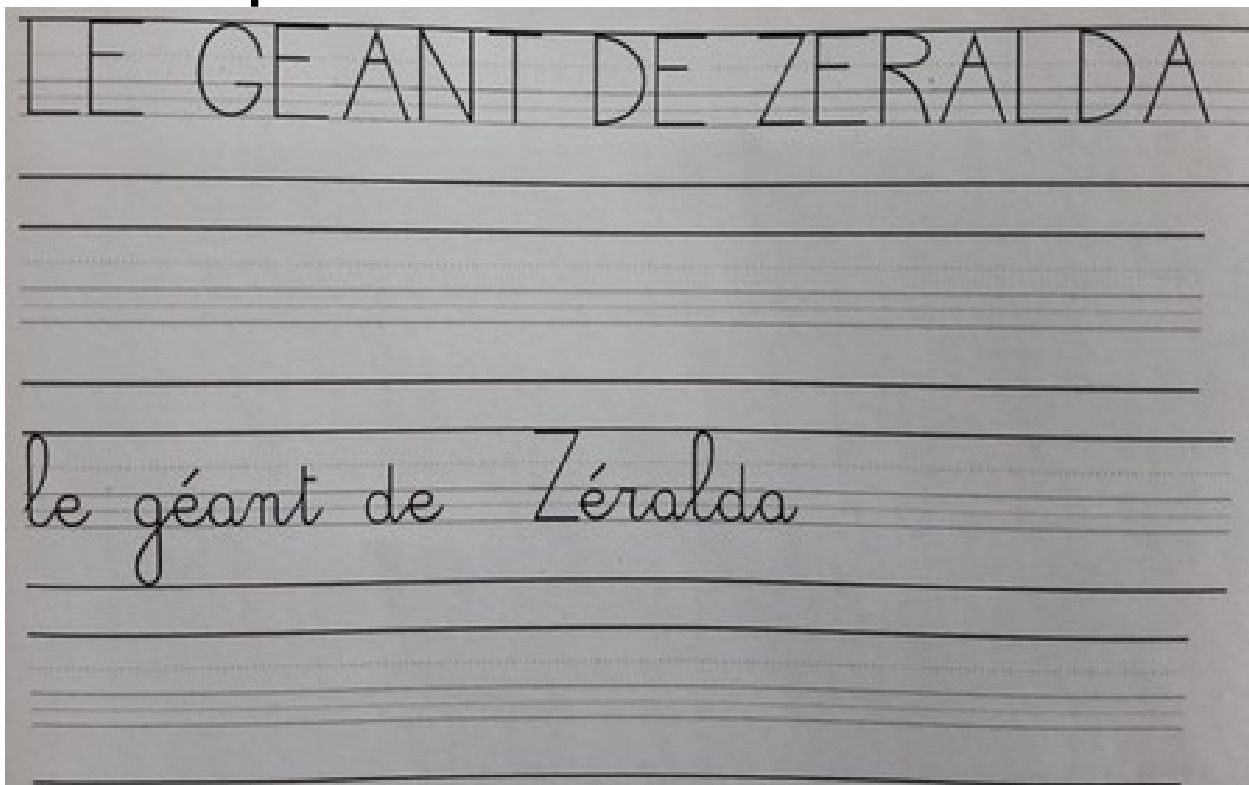 LE GEANT DE ZERALDA
le géant de Zéralda